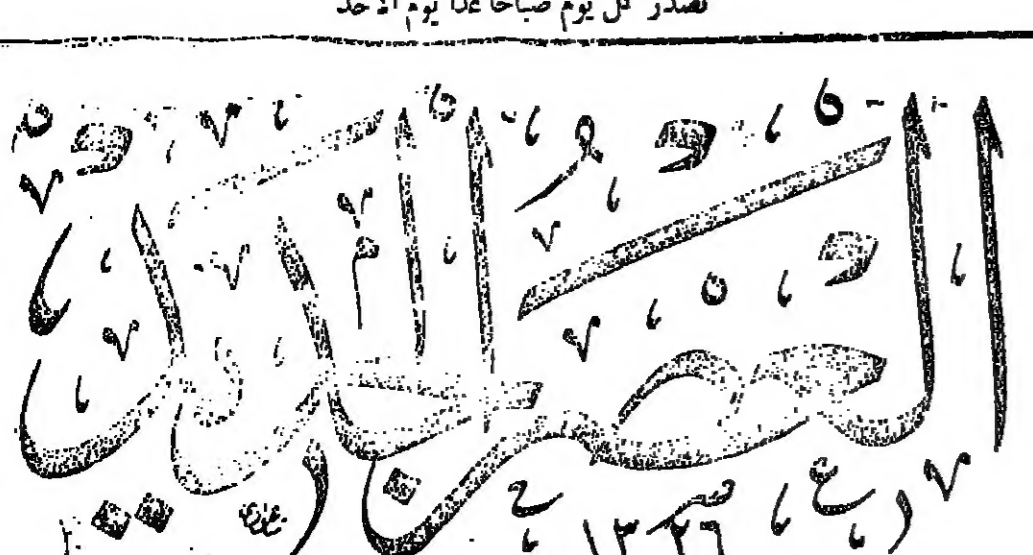 تصدر كل يوم صباحا عدا يوم الاحد
العصر الجديد
١٣٢٦